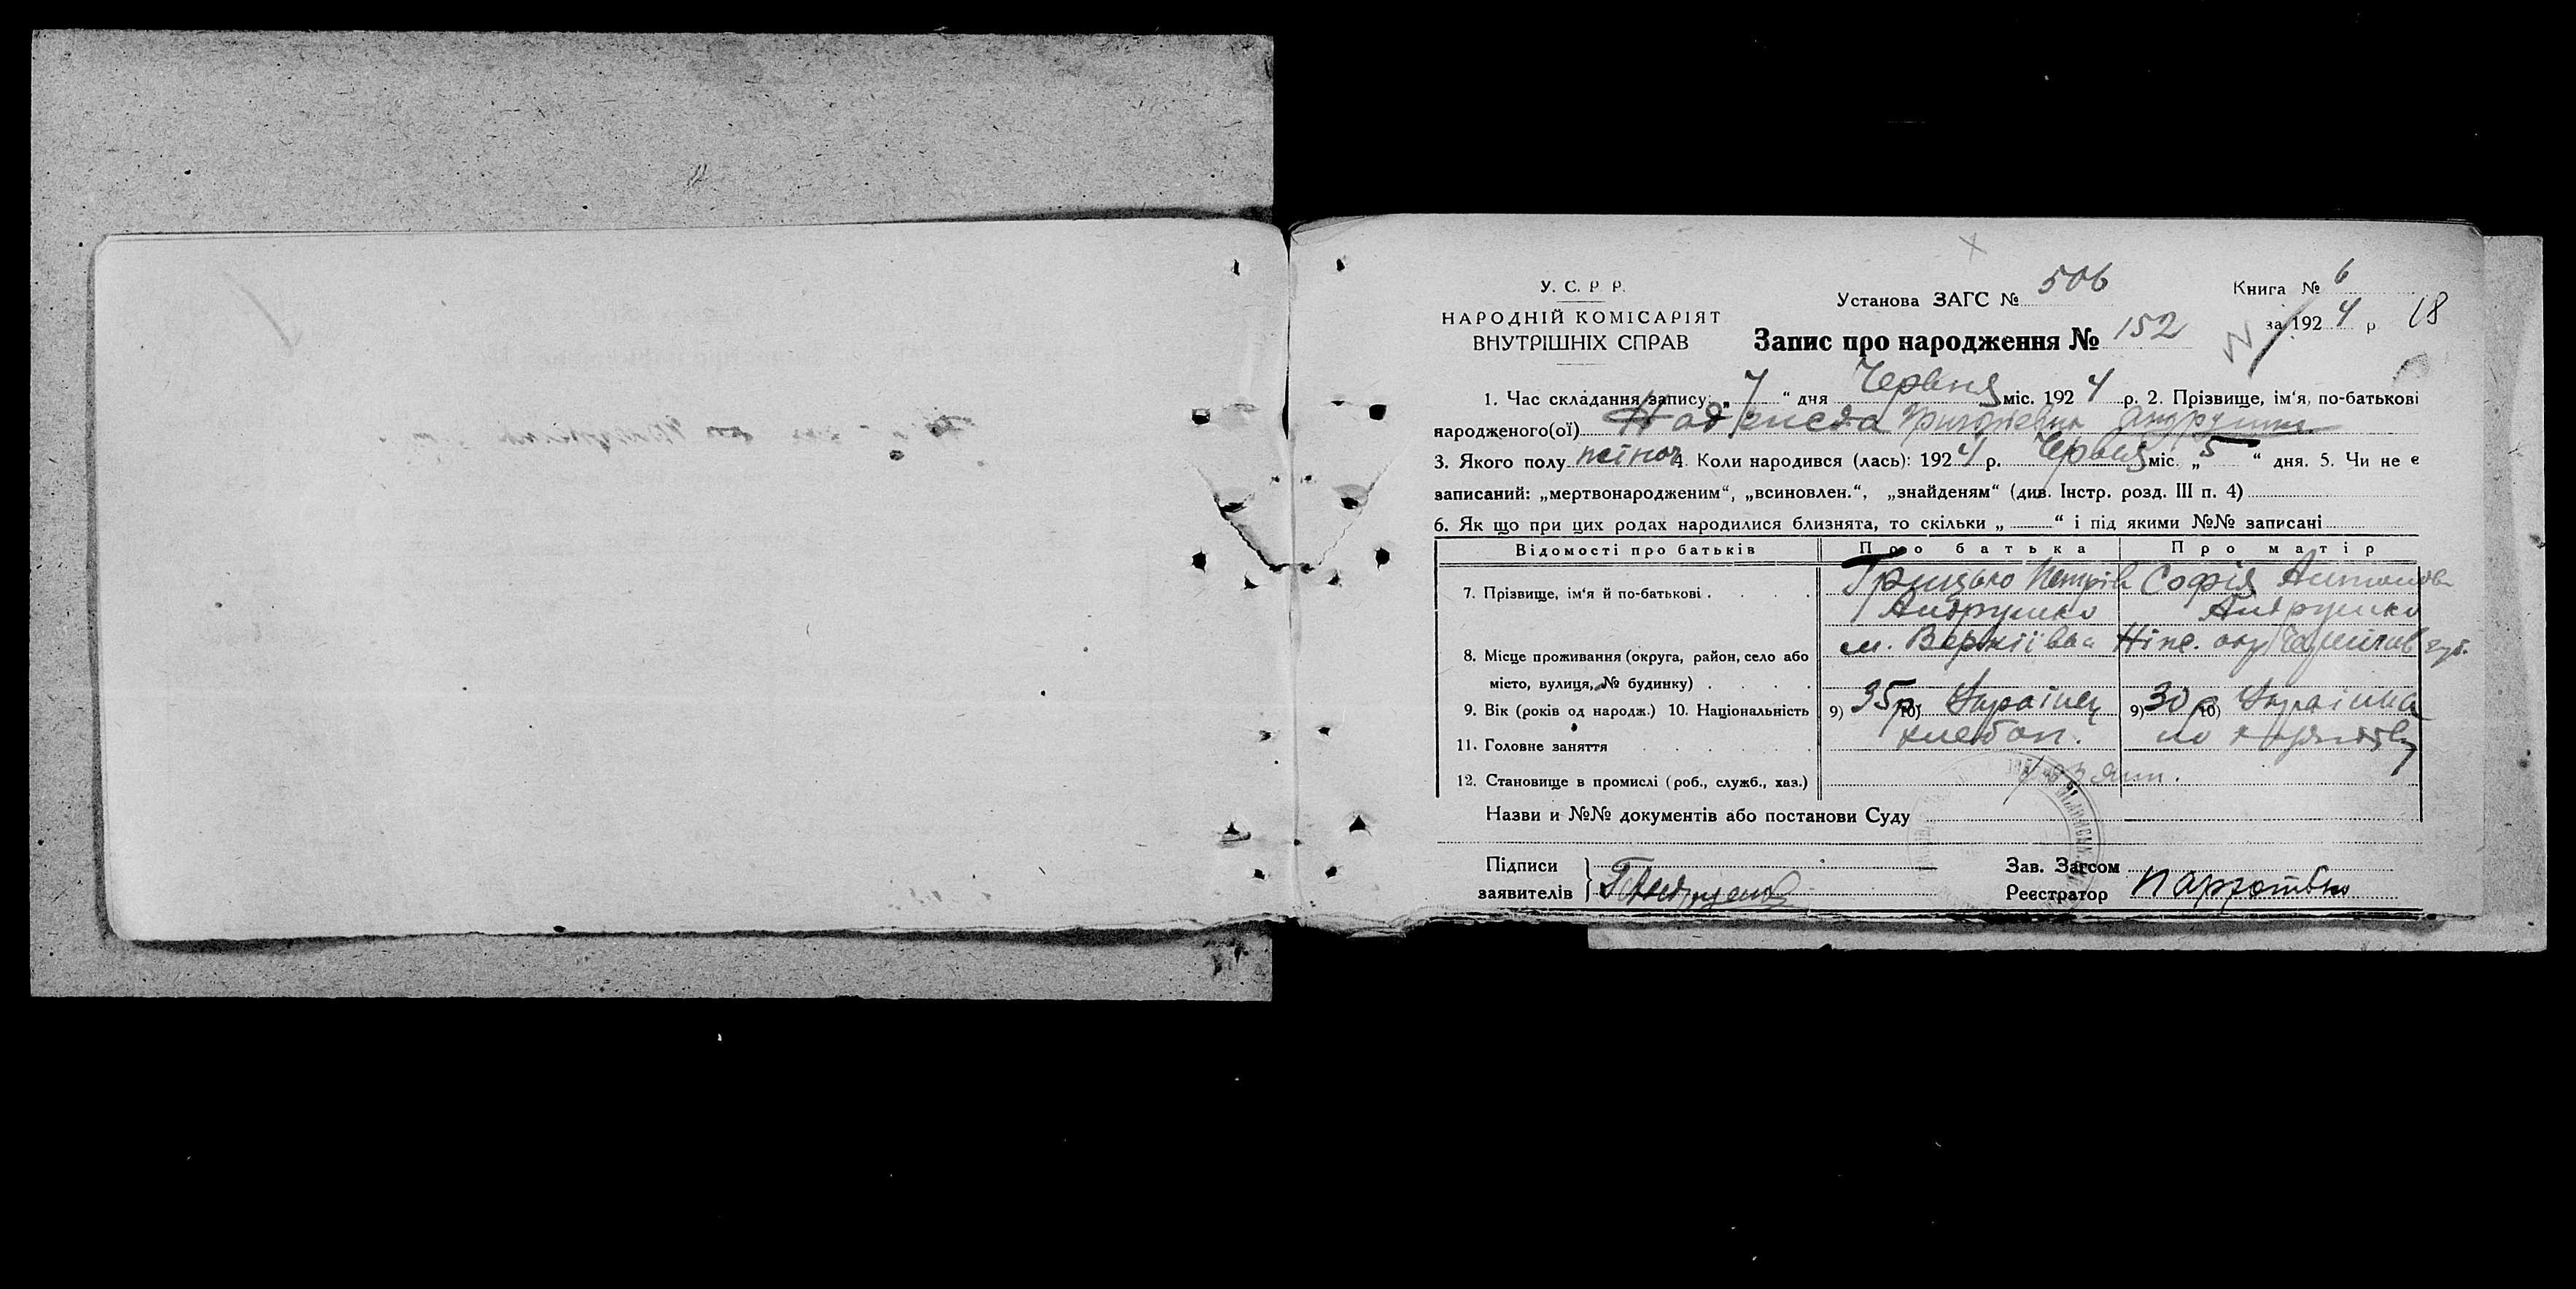 У. С. Р. Р.
НАРОДНІЙ КОМІСАРІЯТ
ВНУТРІШНІХ СПРАВ
Установа ЗАГС № 506
Книга № 6
за 1924 р. 18
Запис про народження № 152
1. Час складання запису: „ 7 “ дня Червня міс. 1924 р. 2. Прізвище, ім‘я, по-батькові
народженого(ої) Надежда Григорієвна Андрушко
3. Якого полу жіноч 4. Коли народився (лась): 1924 р. Червня міс. „ 5 “ дня. 5. Чи не є
записаний: „мертвонародженим“, „всиновлен.“, „знайденям“ (див. Інстр. розд. III п. 4)
6. Як що при цих родах народилися близнята, то скільки „ “ і під якими №№ записані
Відомості про батьків Про батька Про матір
7. Прізвище, ім‘я й по-батькові . Грицько Петрів Софія Антонова
Андрушко Андрушко
8. Місце проживання (округа, район, село або м. Вержіївка Ніже. окр Черниговс губ.
місто, вулиця, № будинку) .
9. Вік (років од народж.) 10. Національність 9) 35 р. 10) Українец 9) 30 р 10) Українка
11. Головне заняття хлебоп.
12. Становище в промислі (роб., служб., хаз.)
Назви и №№ документів або постанови Суду
Підписи
заявителів Г Андрушко
Зав. Загсом
Реєстратор